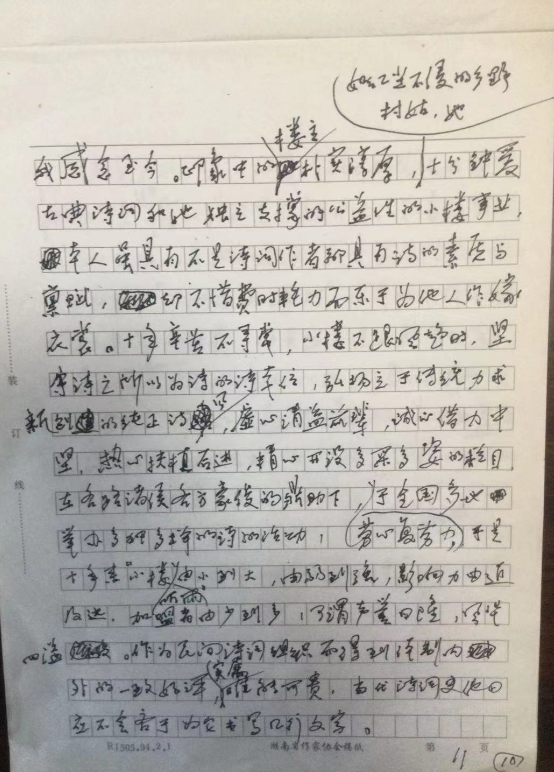 如之坐不履的乡野
村姑，她
楼主
我感念至今。印象中的朴实淳厚，十分钟爱
古典诗词和她独立支撑的公益性的小楼事业，
本人虽具有不是诗词作者却具有诗的素质与
禀赋，却不惜费时耗力而乐于为他人作嫁
衣裳。十年辛苦不寻常，小楼不退时趋时，坚
守诗之所以为诗的诗本位，弘扬立于传统力求
新创的纯正诗，虚心请益前辈，诚心借力中
坚，热心扶植后进，精心开设多彩多姿的栏目，
在各路诸侯各方豪俊的鼎助下，于全国多地
举办多种多样的诗的活动，劳心复劳力，于是
十年来"小楼"由小到大，由弱到强，影响力由近
及远，加盟者由少到多，可谓声誉日隆，
四溢。作为民间诗词组织而得到诗别内
外的一致好评，实属难能可贵，当代诗词史他日
应不会吝于为它书写几行文字。
装
订
线
R1505.94.2.1
湖南省作家协会稿纸
第 页
11
10